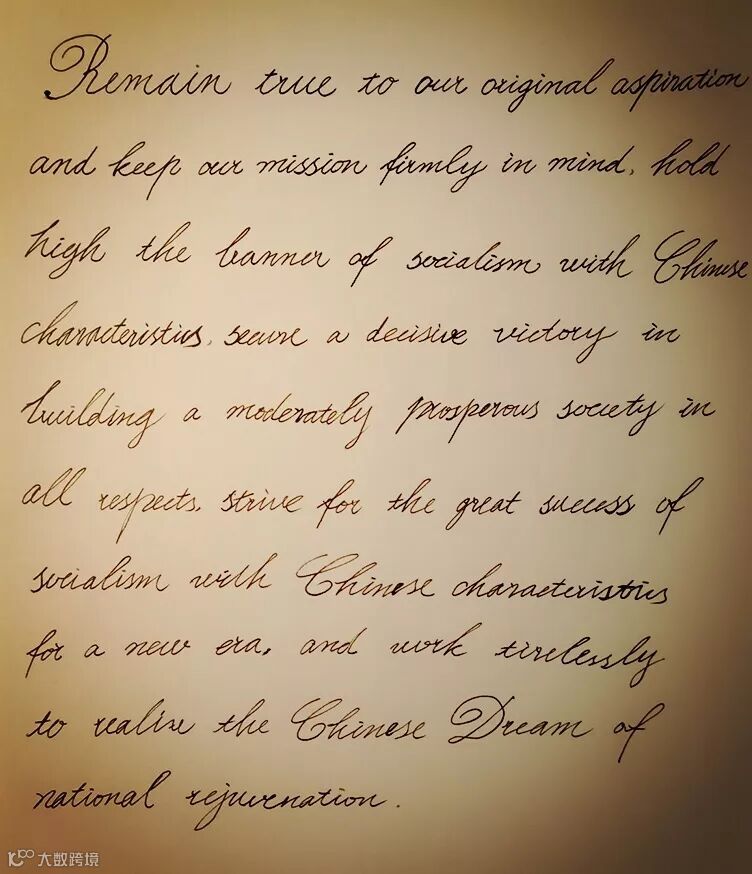 Remain true to our original aspiration
and keep our mission firmly in mind, hold
high the banner of socialism with Chinese
characteristics, secure a decisive victory in
building a moderately prosperous society in
all respects, strive for the great success of
socialism with Chinese characteristics
for a new era, and work tirelessly
to realize the Chinese Dream of
national rejuvenation.
大数跨境